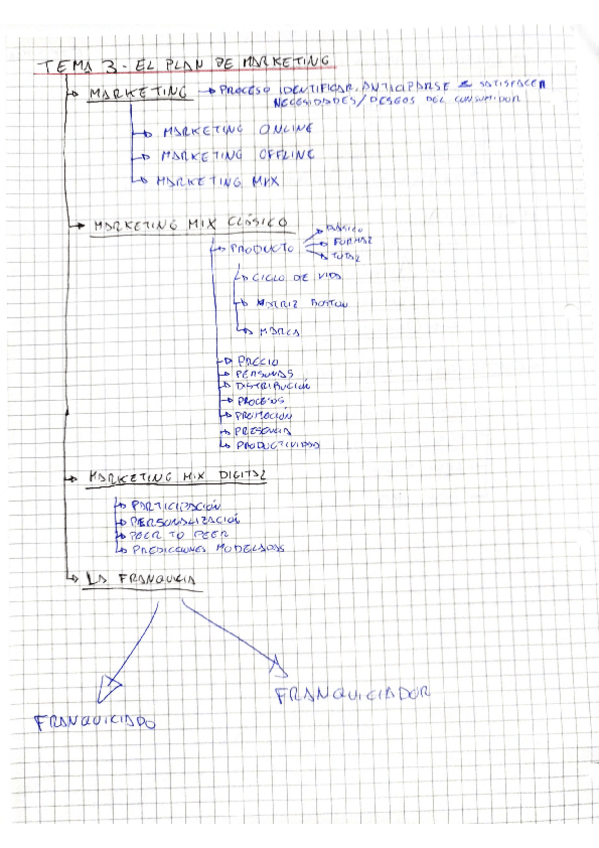 TEMA 3 - EL PLAN DE MARKETING
MARKETING → PROCESO IDENTIFICAR, ANTICIPARSE & SATISFACER
NECESIDADES/DESEOS DEL CONSUMIDOR
MARKETING ONLINE
MARKETING OFFLINE
MARKETING MIX
MARKETING MIX CLÁSICO
BÁSICO
PRODUCTO FORMAL
TOTAL
CICLO DE VIDA
MATRIZ BOSTON
MARCA
PRECIO
PERSONAS
DISTRIBUCIÓN
PROCESOS
PROMOCIÓN
PRESENCIA
PRODUCTIVIDAD
MARKETING MIX DIGITAL
PARTICIPACIÓN
PERSONALIZACIÓN
PEER TO PEER
PREDICCIONES MODELADAS
LA FRANQUICIA
FRANQUICIADOR
FRANQUICIADO